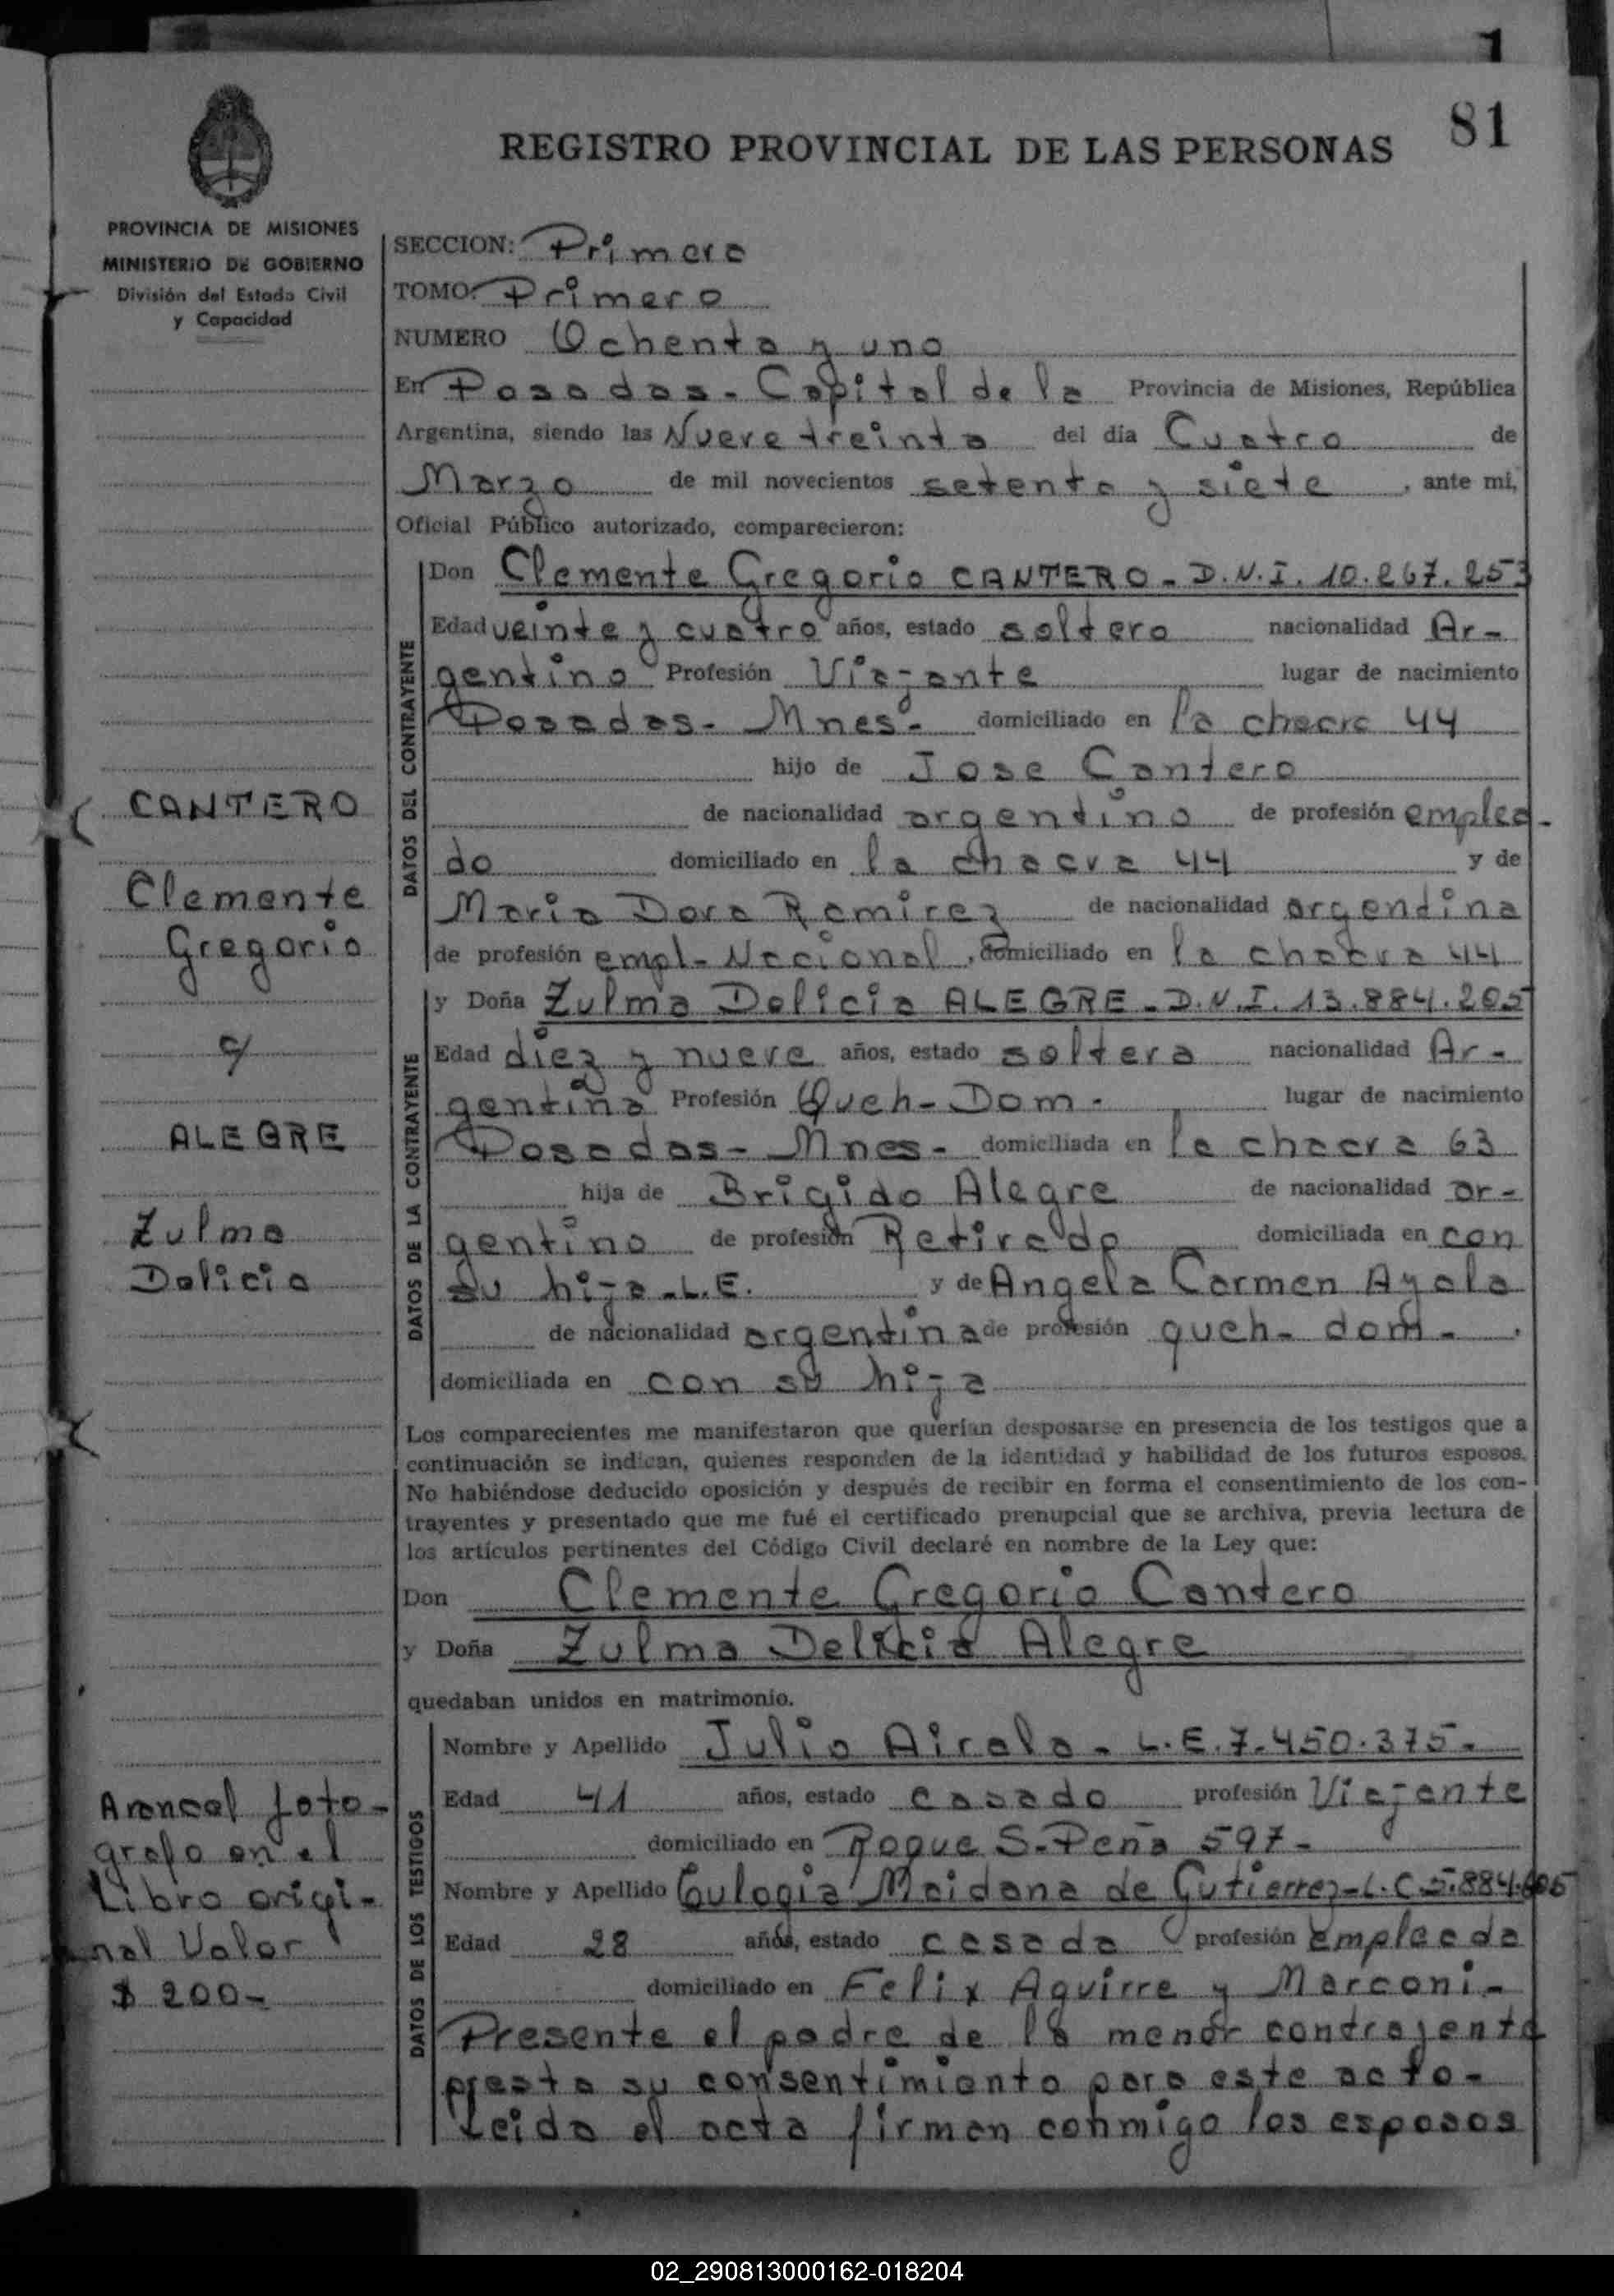 1
81
REGISTRO PROVINCIAL DE LAS PERSONAS
PROVINCIA DE MISIONES
MINISTERIO DE GOBIERNO
División del Estado Civil
y Capacidad
SECCION: Primera
TOMO: Primero
NUMERO Ochenta y uno
En Posadas - Capital de la Provincia de Misiones, República
Argentina, siendo las Nueve treinta del día Cuatro de
Marzo de mil novecientos setenta y siete, ante mí,
Oficial Público autorizado, comparecieron:
DATOS DEL CONTRAYENTE
Don Clemente Gregorio CANTERO - D.N.I. 10.267.253
Edad veinte y cuatro años, estado soltero nacionalidad Ar-
gentino Profesión Viajante lugar de nacimiento
Posadas - Mnes - domiciliado en la chacra 44
hijo de Jose Cantero
de nacionalidad argentino de profesión emplea-
do domiciliado en la chacra 44 y de
Maria Dora Ramirez de nacionalidad argentina
de profesión empl - Nacional, domiciliado en la chacra 44
DATOS DE LA CONTRAYENTE
y Doña Zulma Delicia ALEGRE - D.N.I. 13.884.205
Edad diez y nueve años, estado soltera nacionalidad Ar-
gentina Profesión Queh - Dom - lugar de nacimiento
Posadas - Mnes - domiciliada en la chacra 63
hija de Brigido Alegre de nacionalidad ar-
gentino de profesión Retirado domiciliada en con
su hija - L.E. y de Angela Carmen Ayala
de nacionalidad argentina de profesión queh - dom -
domiciliada en con su hija
Los comparecientes me manifestaron que querían desposarse en presencia de los testigos que a
continuación se indican, quienes responden de la identidad y habilidad de los futuros esposos.
No habiéndose deducido oposición y después de recibir en forma el consentimiento de los con-
trayentes y presentado que me fué el certificado prenupcial que se archiva, previa lectura de
los artículos pertinentes del Código Civil declaré en nombre de la Ley que:
Don Clemente Gregorio Cantero
y Doña Zulma Delicia Alegre
quedaban unidos en matrimonio.
DATOS DE LOS TESTIGOS
Nombre y Apellido Julio Airala - L.E. 7.450.375 -
Edad 41 años, estado casado profesión Viajante
domiciliado en Roque S. Peña 597 -
Nombre y Apellido Eulogia Maidana de Gutierrez - L.C. 5.884.
Edad 28 años, estado casada profesión Empleada
domiciliado en Felix Aguirre y Marconi -
Presente el padre de la menor contrayente
presta su consentimiento para este acto -
Leida el acta firman conmigo los esposos
CANTERO
Clemente
Gregorio
c/
ALEGRE
Zulma
Delicia
Arancel foto-
grafo en el
Libro origi-
nal Valor
$ 200 -
02_290813000162-018204